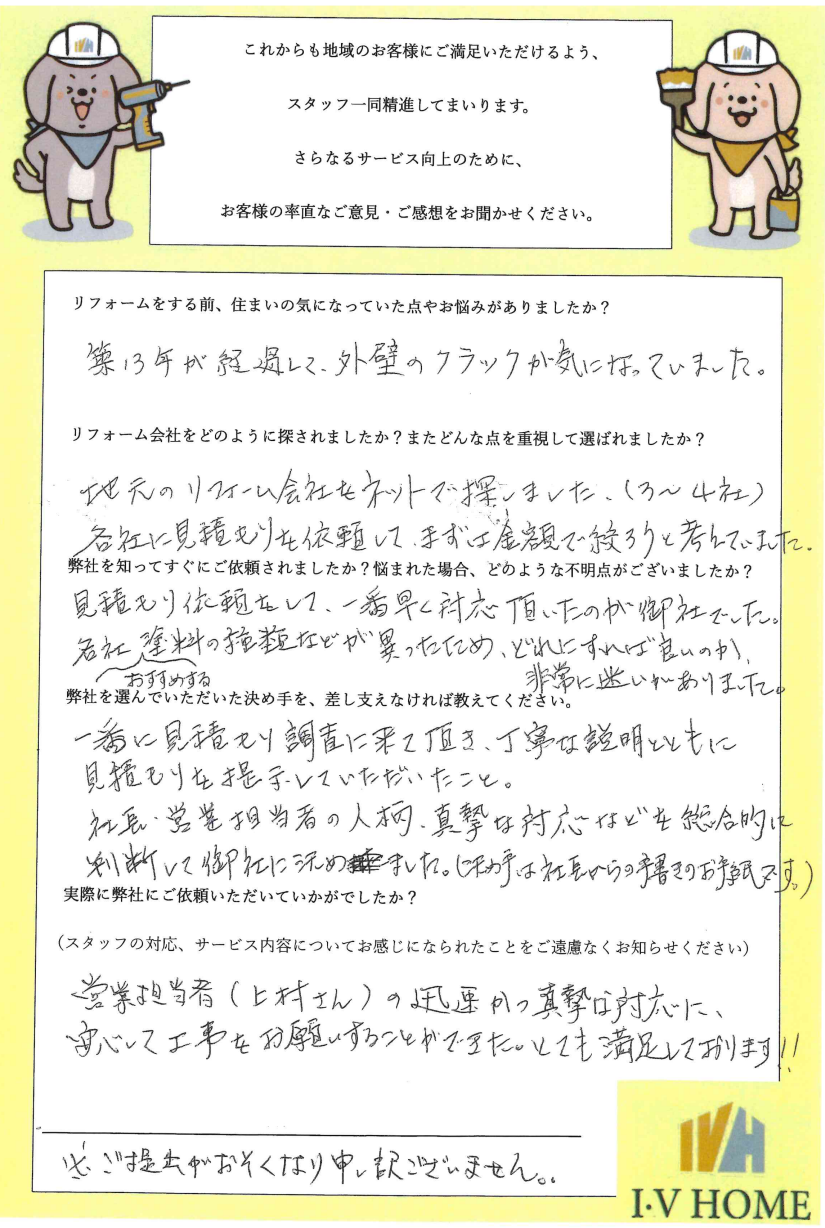 これからも地域のお客様にご満足いただけるよう、
スタッフ一同精進してまいります。
さらなるサービス向上のために、
お客様の率直なご意見・ご感想をお聞かせください。
リフォームをする前、住まいの気になっていた点やお悩みがありましたか？
築13年が経過して、外壁のクラックが気になっていました。
リフォーム会社をどのように探されましたか？またどんな点を重視して選ばれましたか？
地元のリフォーム会社をネットで探しました、(3〜4社)
各社に見積もりを依頼して、まずは金額で絞ろうと考えていました.
弊社を知ってすぐにご依頼されましたか？悩まれた場合、どのような不明点がございましたか？
見積もり依頼をして、一番早く対応頂いたのが御社でした。
各社 塗料の種類などが異ったため、どれにすれば良いのか、
おすすめする
非常に迷いがありました。
弊社を選んでいただいた決め手を、差し支えなければ教えてください。
一番に見積もり調査に来て頂き、丁寧な説明とともに
見積もりを提示していただいたこと。
社長・営業担当者の人柄、真摯な対応などを総合的に
判断して御社に決めました。(決め手は社長からの手書きのお手紙です。)
実際に弊社にご依頼いただいていかがでしたか？
（スタッフの対応、サービス内容についてお感じになられたことをご遠慮なくお知らせください）
営業担当者(上村さん)の迅速かつ真摯な対応に、
安心して工事をお願いすることができた。とても満足しております!!
※ご提出がおそくなり申し訳ございません。。
IVH
I・V HOME